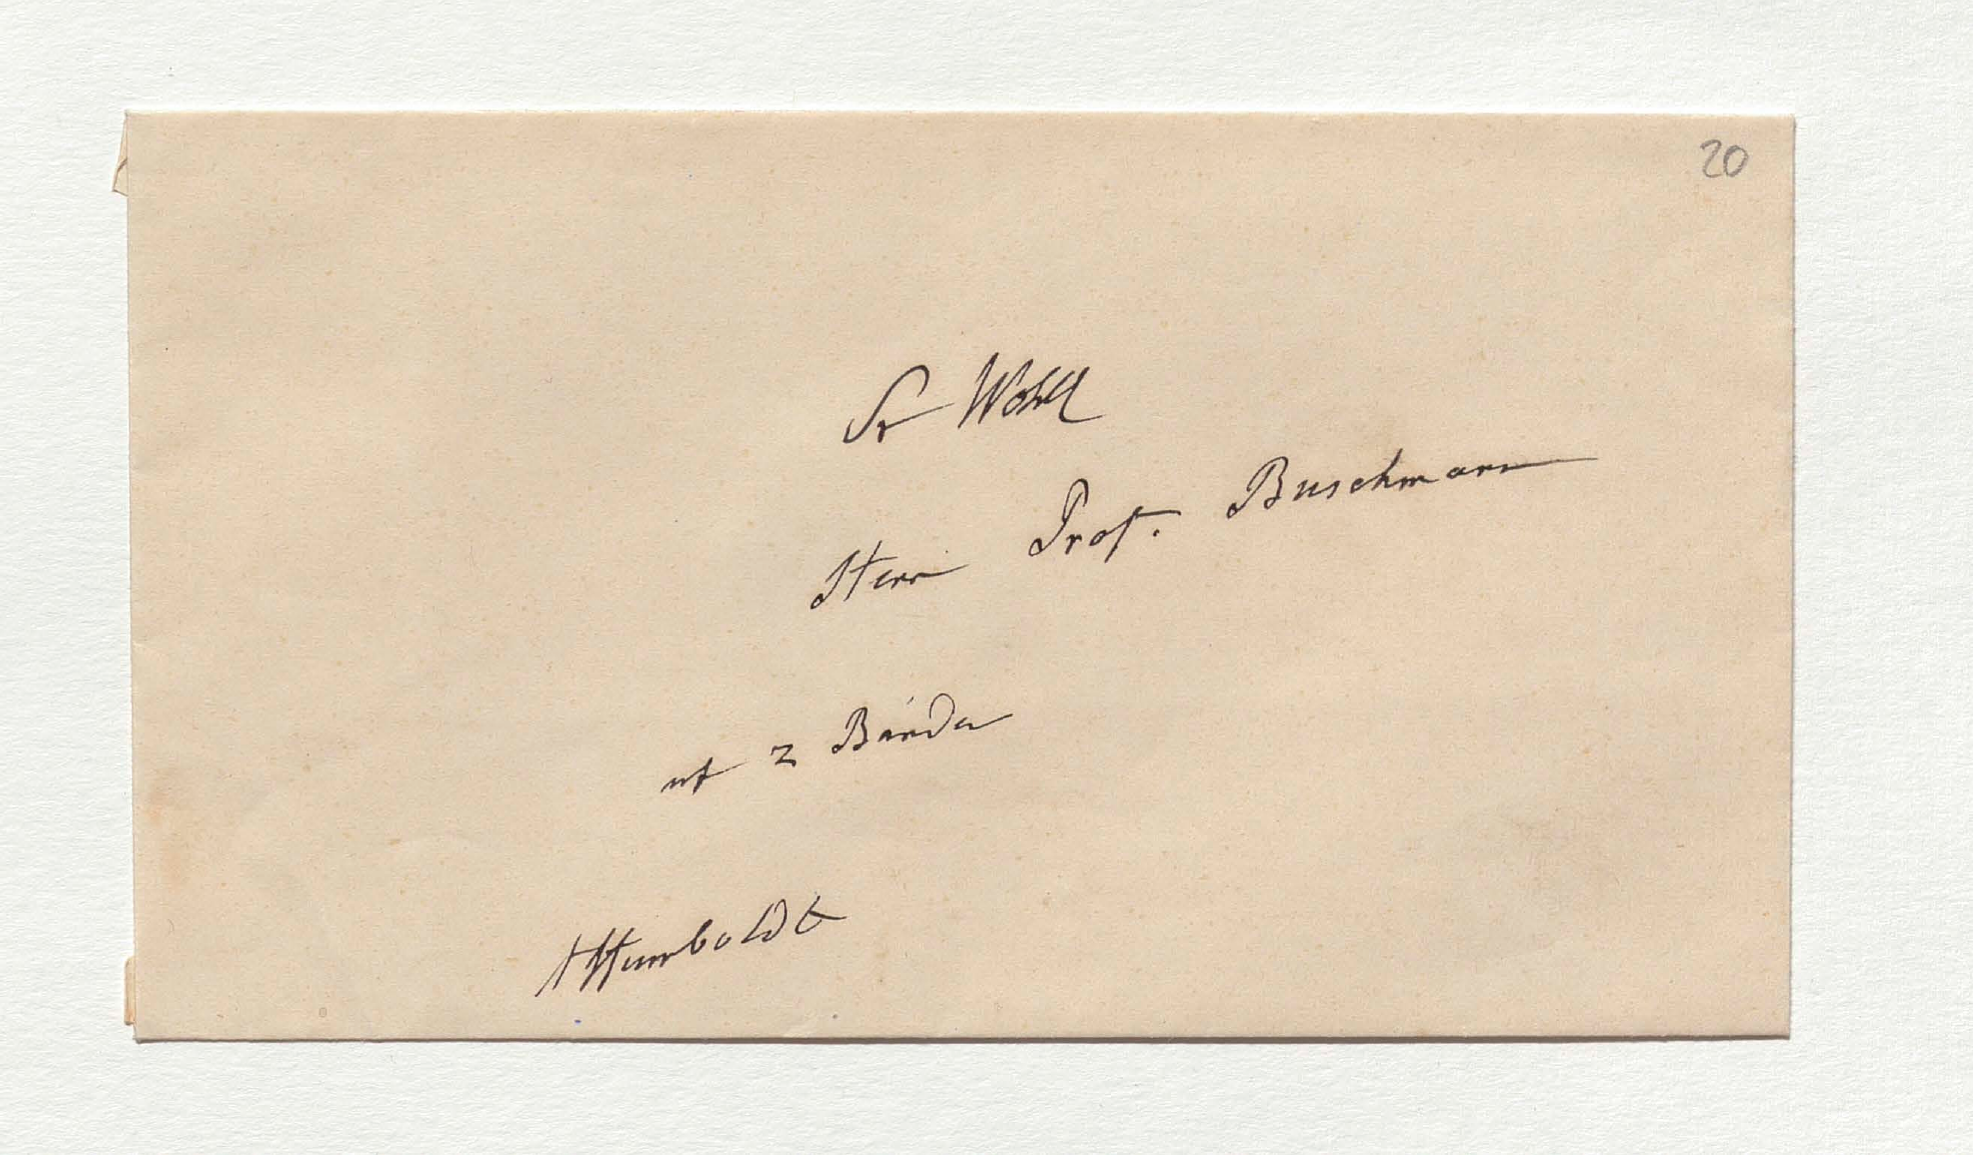 20
Sr Wohl
Herr Prof. Buschmann
mit 2 Bänden
AHumboldt